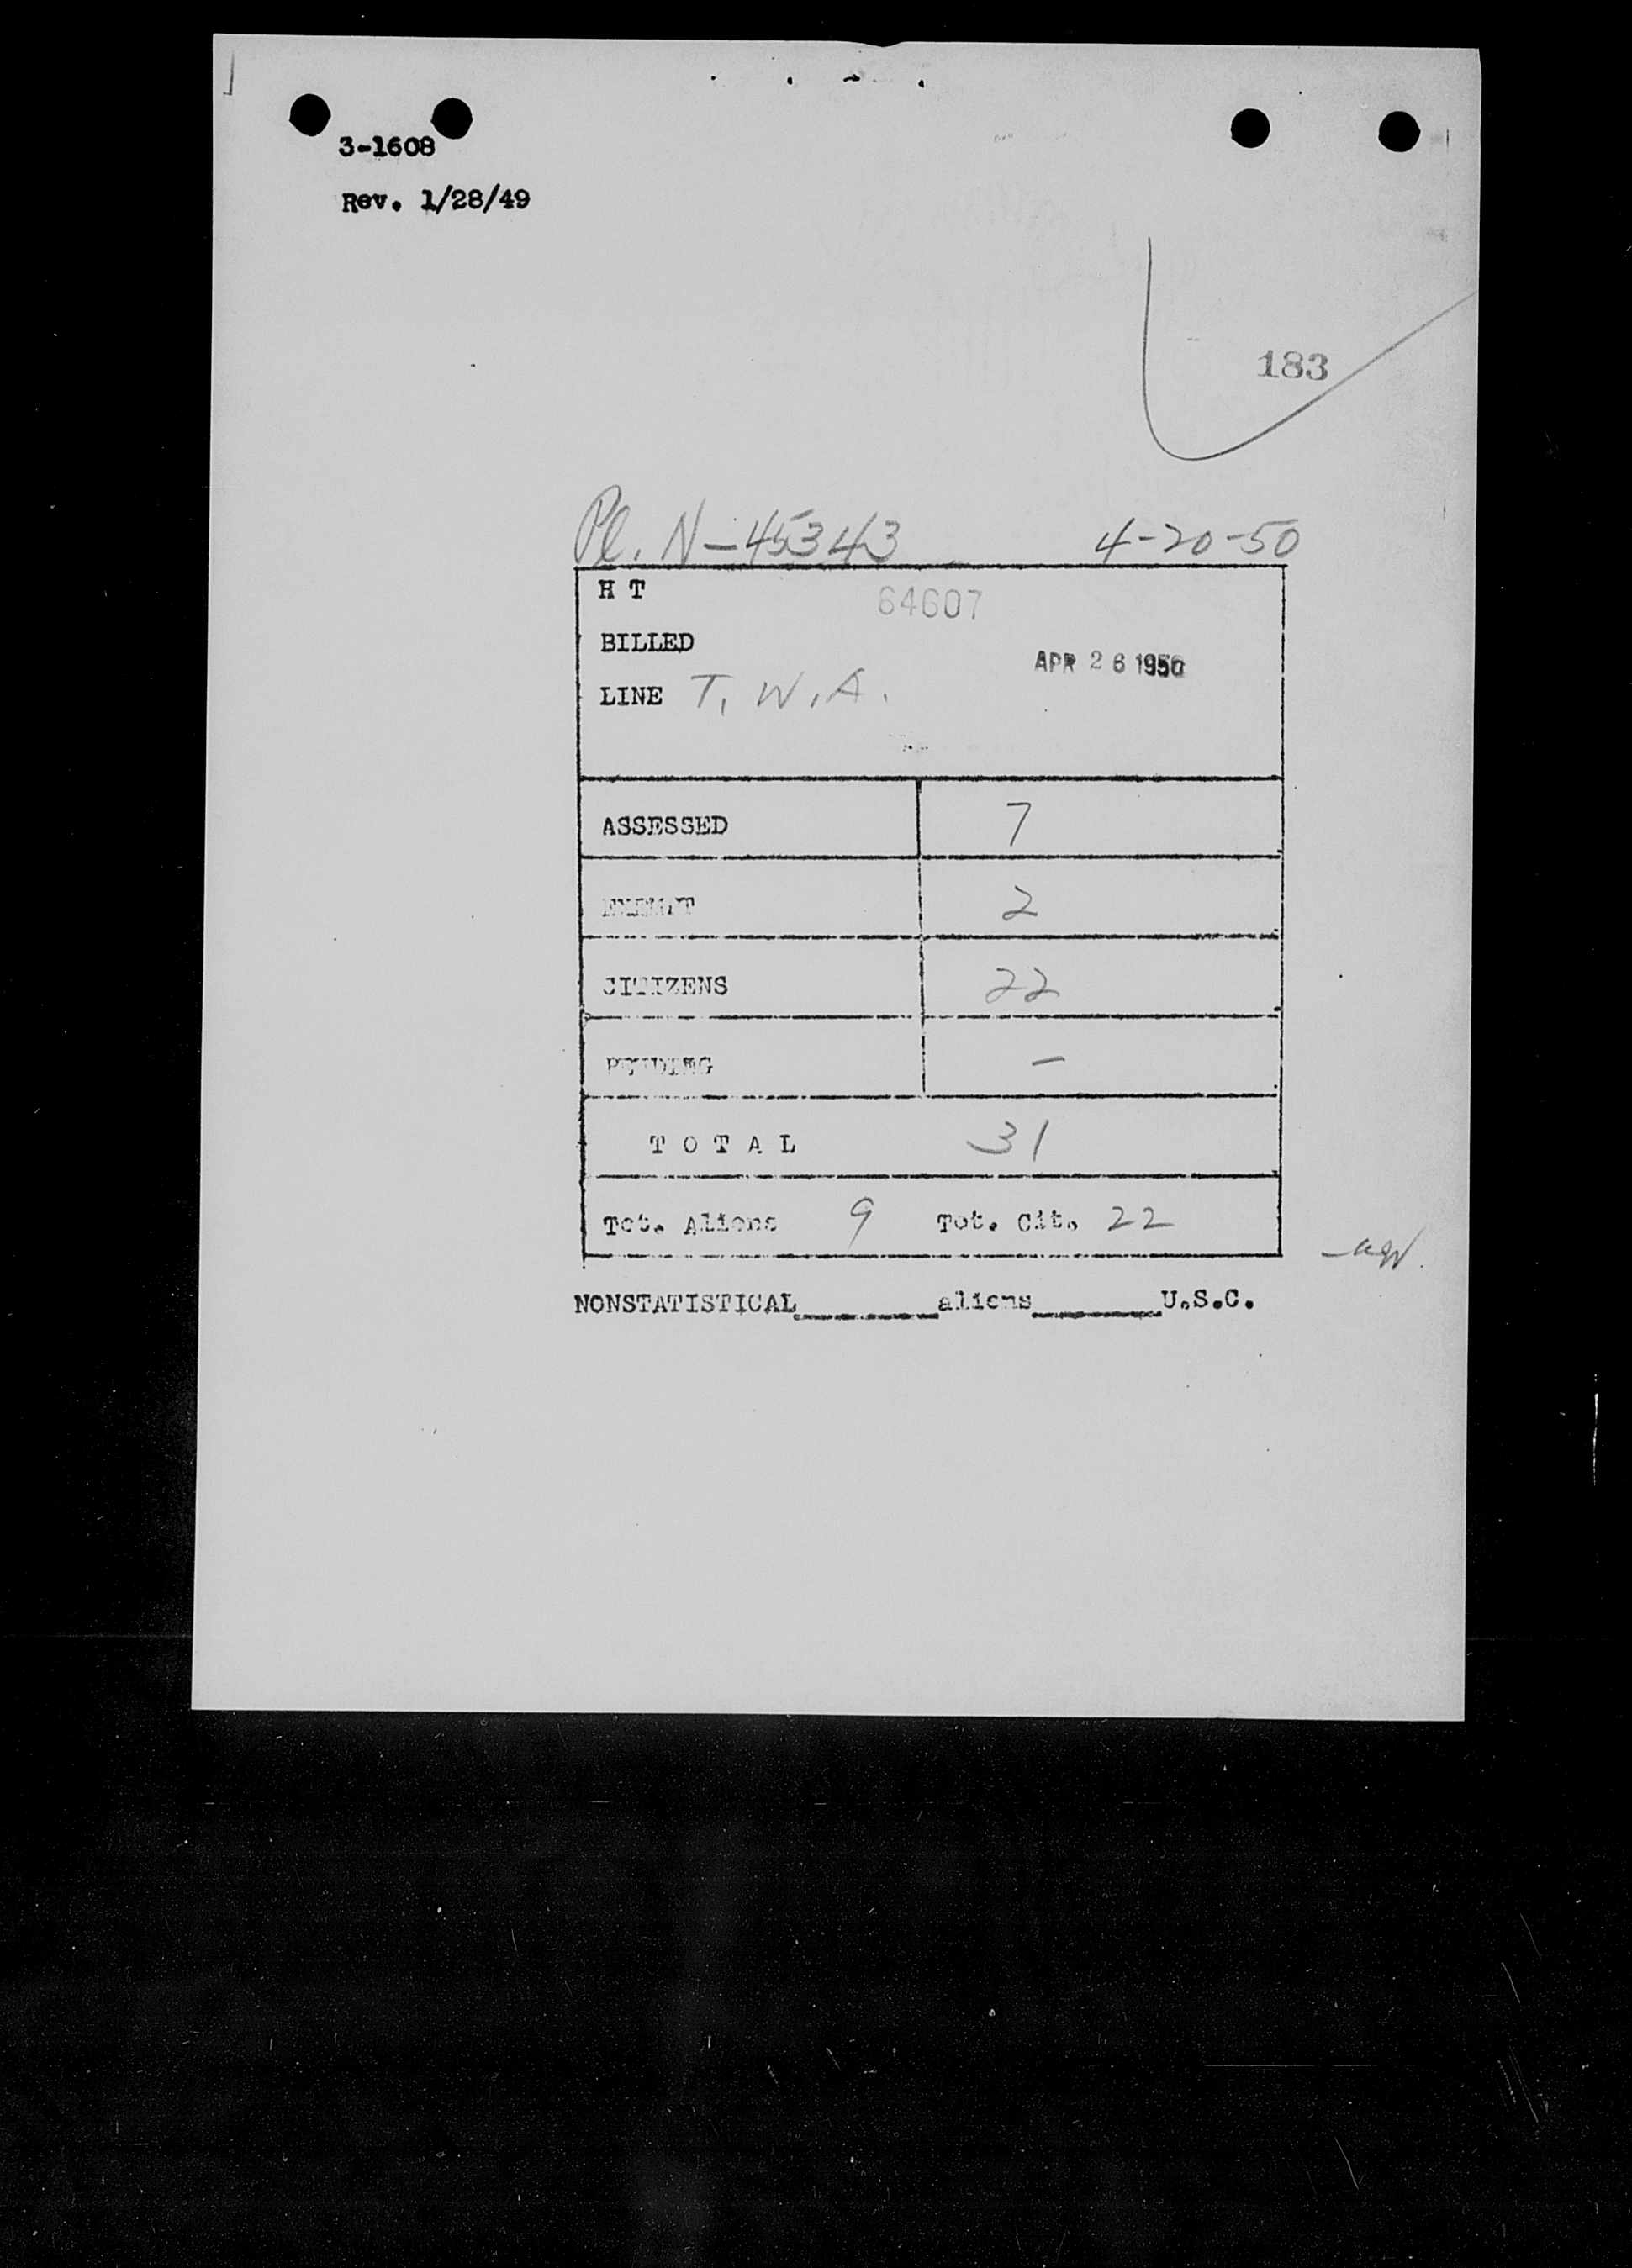 3-1608
Rev. 1/28/49
183
Pl. N-45343 4-20-50
H T 64607
BILLED
APR 26 1950
LINE T.W.A.
ASSESSED 7
EXEMPT 2
CITIZENS 22
PENDING –
TOTAL 31
Tot. Aliens 9 Tot. Cit. 22
NONSTATISTICAL________aliens________U.S.C.